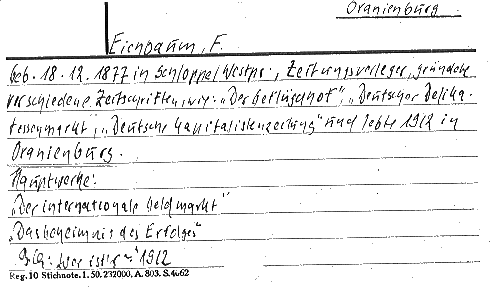 Oranienburg
Eichbaum, F.
geb. 18.12.1877 in Schloppe/Westpr., Zeitungsverleger, gründete
verschiedene Zeitschriften, wie: „Der Geflügelhof", „Deutscher Delika-
tessenmarkt", „Deutsche Kapitalistenzeitung" und lebte 1912 in
Oranienburg.
Hauptwerke:
„Der internationale Geldmarkt"
„Das Geheimnis des Erfolges"
Wer ist's 1912
Reg. 10 Stichnote. 1. 50. 232000, A. 803. S. 4662